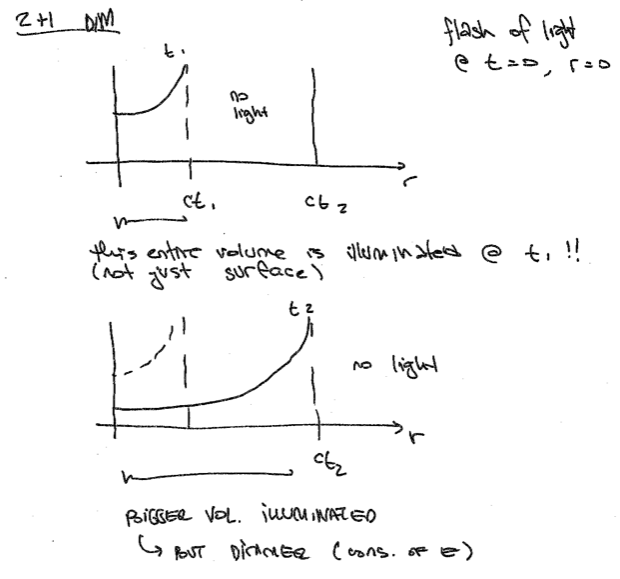 2+1 DIM
flash of light
@ t=0, r=0
t₁
no
light
r
ct₁
ct₂
this entire volume is illuminated @ t₁ !!
(not just surface)
t₂
no light
r
ct₂
BIGGER VOL. ILLUMINATED
↳ BUT DIMMER (CONS. OF E)